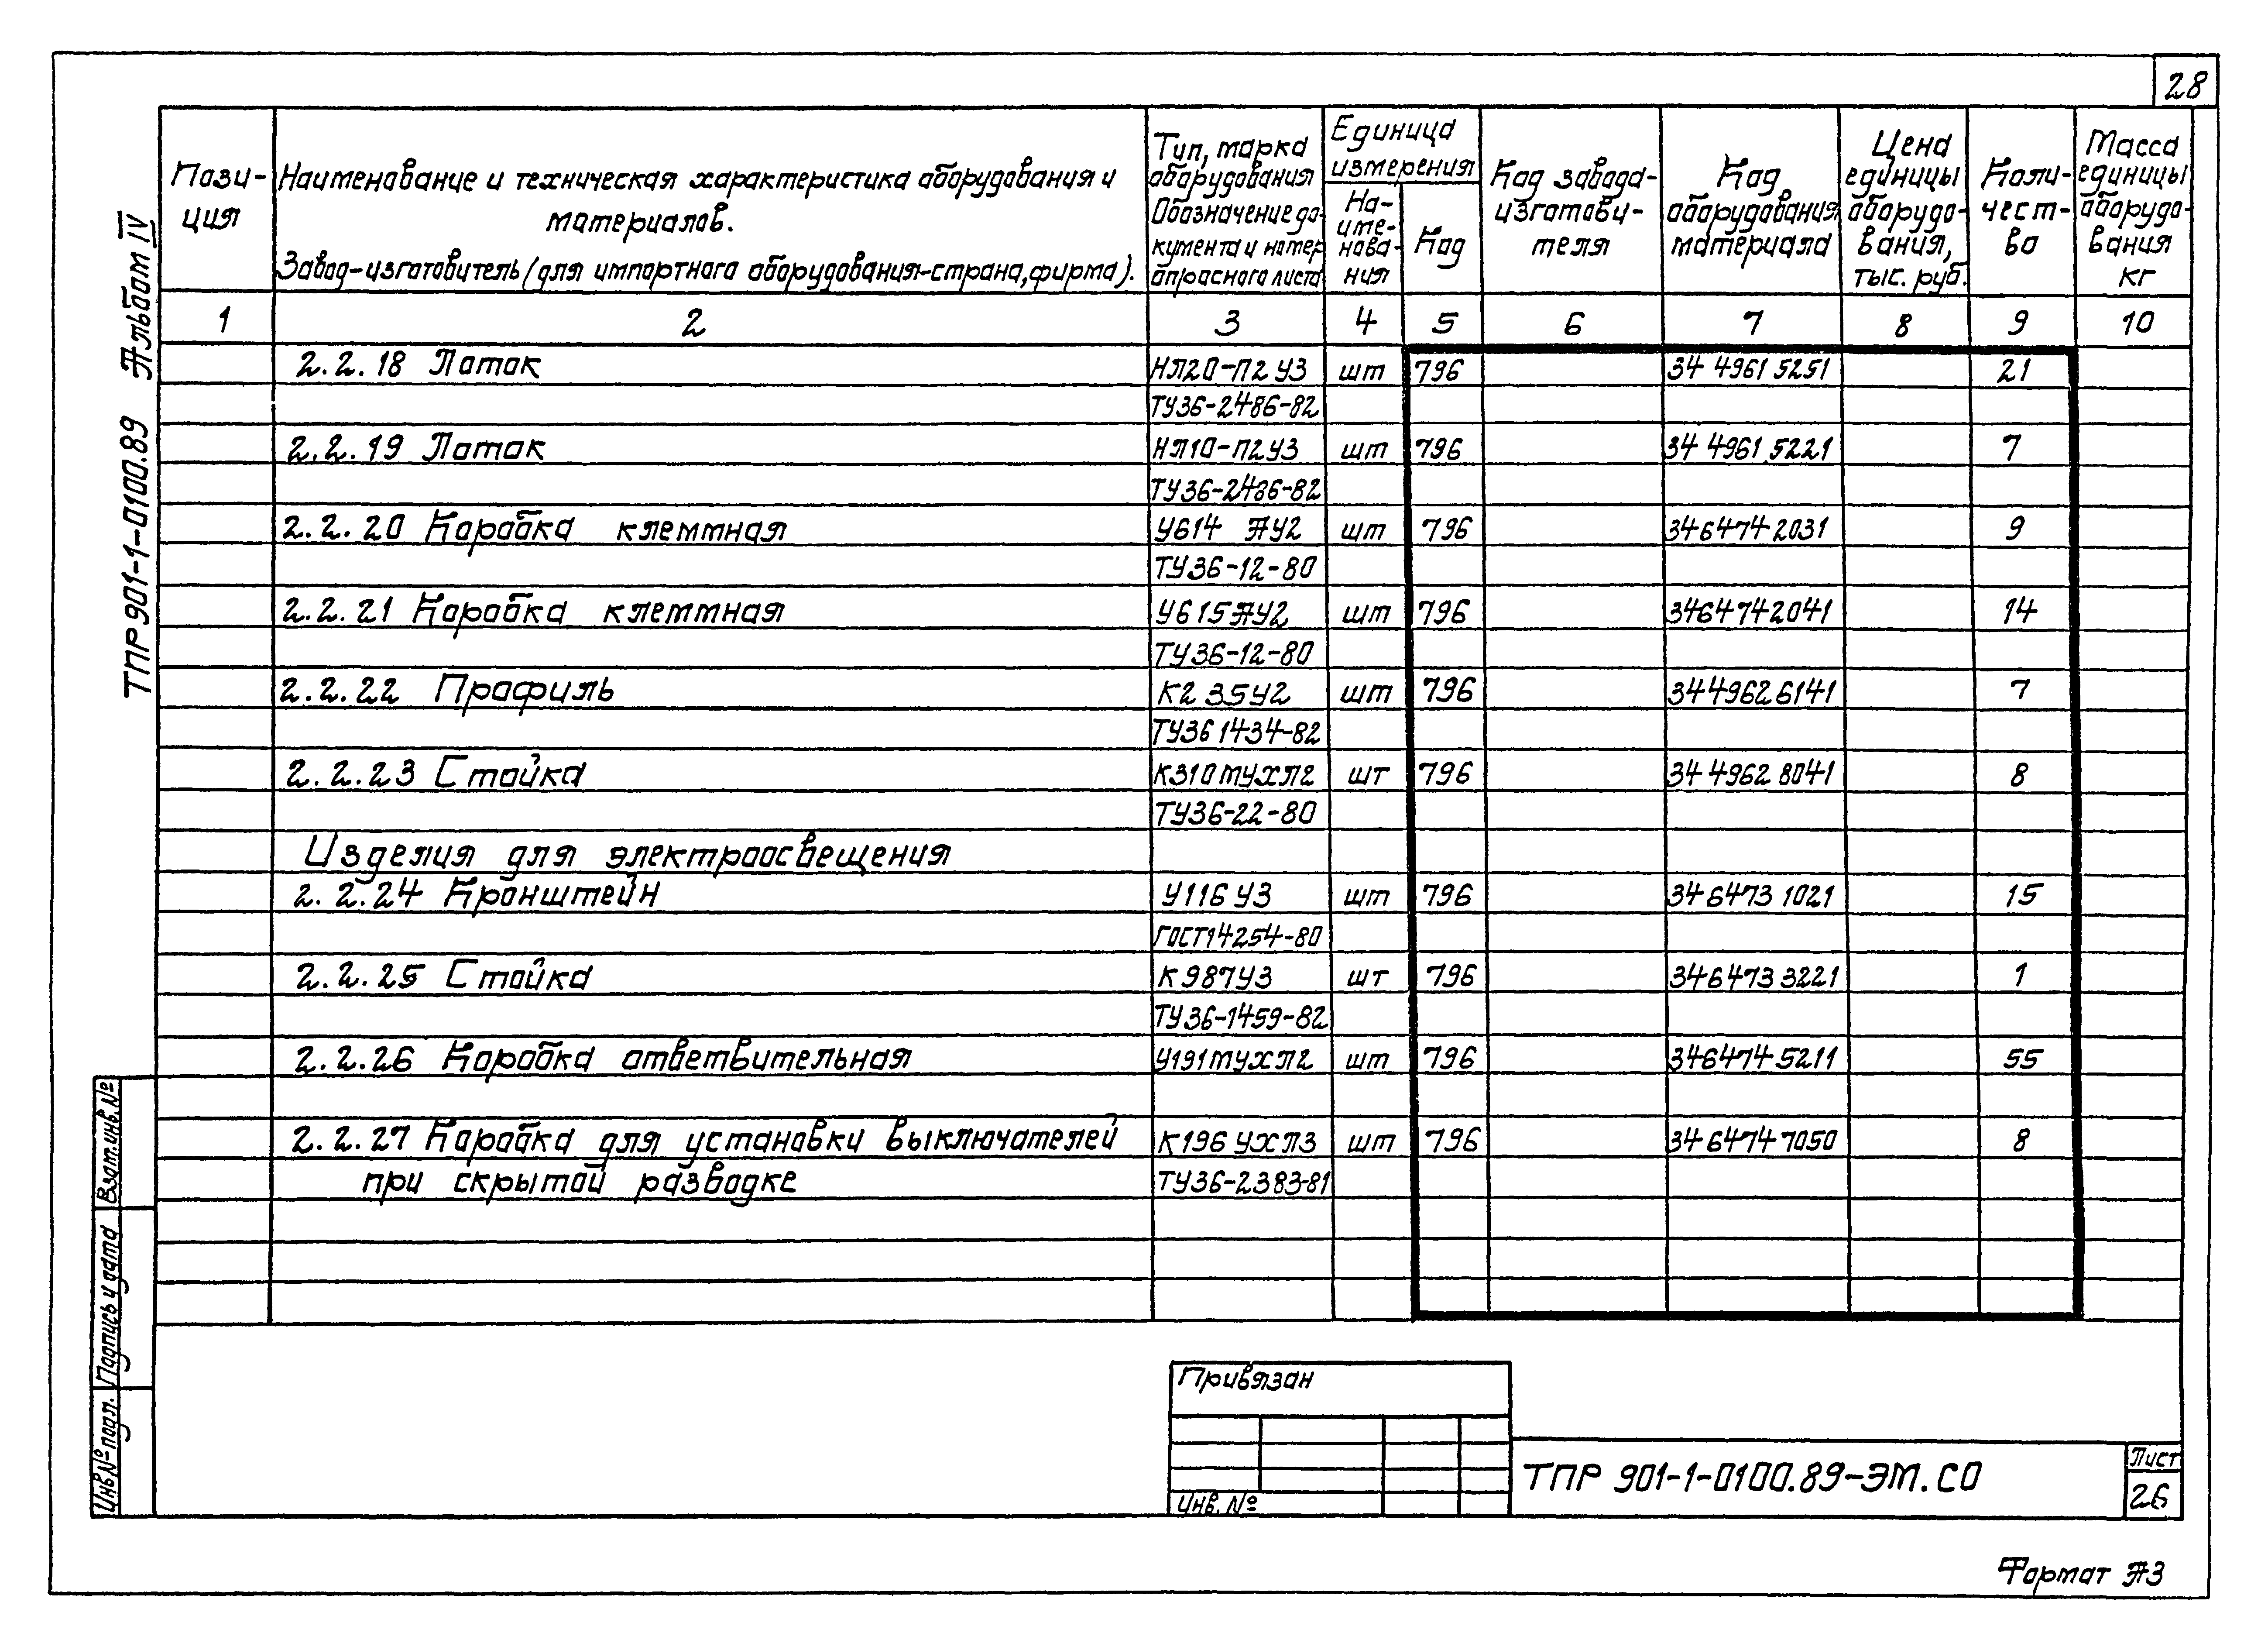 28
Пози-
ция
Наименование и техническая характеристика оборудования и
материалов.
Завод-изготовитель (для импортного оборудования-страна, фирма).
Тип, марка
оборудования
Обозначение до-
кумента и номер
опросного листа
Единица
измерения
На-
име-
нова-
ния
Код
Код завода-
изготови-
теля
Код
оборудования
материала
Цена
единицы
оборудо-
вания,
тыс. руб.
Коли-
чест-
во
Масса
единицы
оборудо-
вания
кг
1 2 3 4 5 6 7 8 9 10
2.2.18 Лоток НЛ20-П2У3 шт 796 34 4961 5251 21
ТУ36-2486-82
2.2.19 Лоток НЛ10-П2У3 шт 796 34 4961 5221 7
ТУ36-2486-82
2.2.20 Коробка клеммная У614 АУ2 шт 796 346474 2031 9
ТУ36-12-80
2.2.21 Коробка клеммная У615АУ2 шт 796 3464742041 14
ТУ36-12-80
2.2.22 Профиль К235У2 шт 796 344962 6141 7
ТУ36 1434-82
2.2.23 Стойка К310МУХЛ2 шт 796 34 4962 8041 8
ТУ36-22-80
Изделия для электроосвещения
2.2.24 Кронштейн У116У3 шт 796 346473 1021 15
ГОСТ14254-80
2.2.25 Стойка К987У3 шт 796 346473 3221 1
ТУ36-1459-82
2.2.26 Коробка ответвительная У191МУХЛ2 шт 796 346474 5211 55
2.2.27 Коробка для установки выключателей К196 УХЛ3 шт 796 34 6474 7050 8
при скрытой разводке ТУ36-2383-81
ТПР 901-1-0100.89 Альбом IV
Взам.инв.№
Подпись и дата
Инв№подл.
Привязан
Инв.№
ТПР 901-1-0100.89-ЭМ.СО
Лист
26
Формат А3